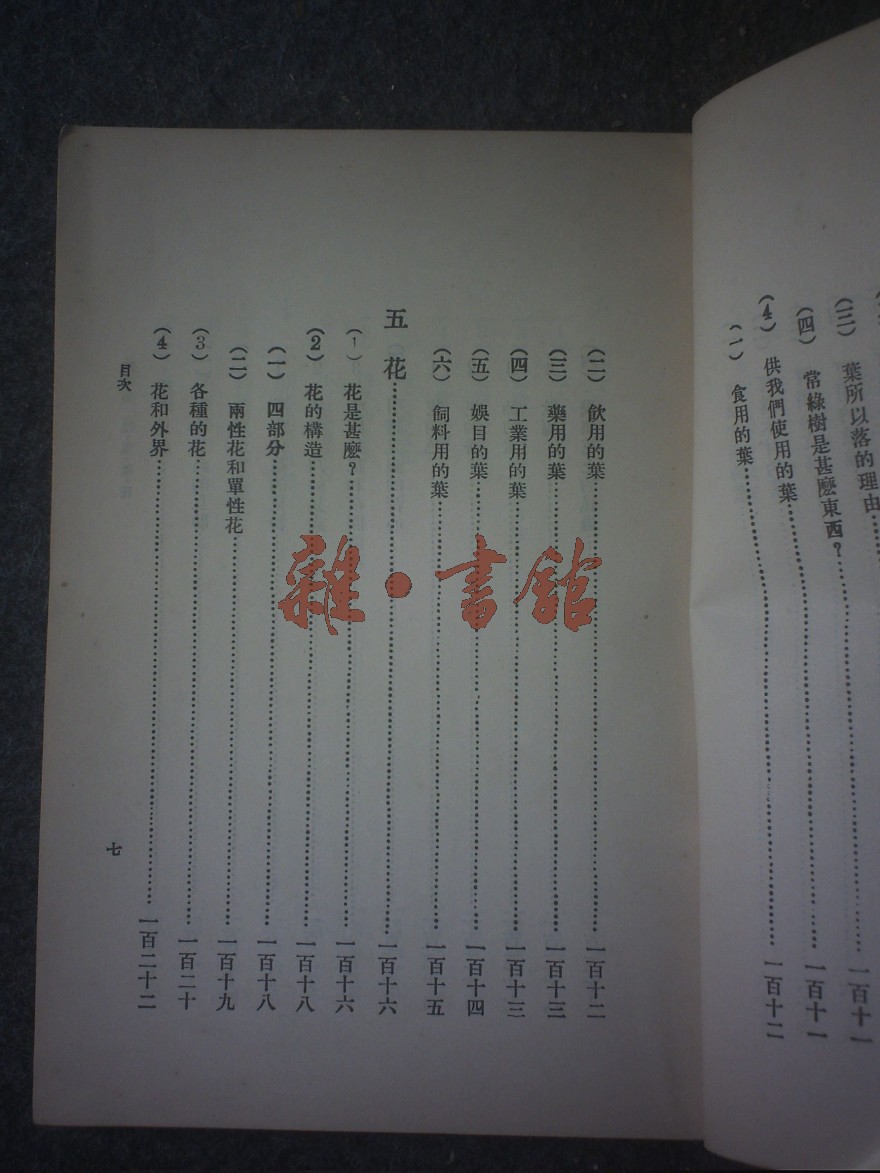 （三）葉所以落的理由……一百十一
（四）常綠樹是甚麽東西？……一百十一
（4）供我們使用的葉……一百十二
（一）食用的葉
（二）飲用的葉……一百十二
（三）藥用的葉……一百十三
（四）工業用的葉……一百十三
（五）娛目的葉……一百十四
（六）飼料用的葉……一百十五
五 花……一百十六
（1）花是甚麽？……一百十六
（2）花的構造……一百十八
（一）四部分……一百十八
（二）兩性花和單性花……一百十九
（3）各種的花……一百二十
（4）花和外界……一百二十二
目次
七
雜·書館